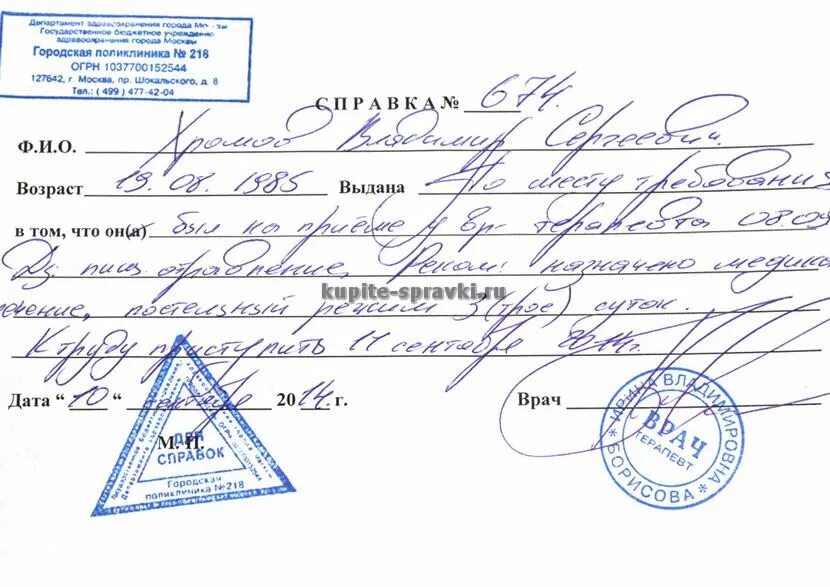 Департамент здравоохранения города Москвы
Государственное бюджетное учреждение
здравоохранения города Москвы
Городская поликлиника № 218
ОГРН 1037700152544
127642, г. Москва, пр. Шокальского, д. 8
Тел.: ( 499 ) 477-42-04
СПРАВКА № 674.
Ф.И.О. Хромов Владимир Сергеевич.
Возраст 19.08.1985 Выдана По месту требования
в том, что он(а) был на приёме у вр- терапевта 08.09
Дз: пищ. отравление. Реком: назначено медика
ечение, постельный режим 3 (трое) суток.
kupite-spravki.ru
К труду приступить 11 сентября 2014г.
Дата "10" сентября 2014 г.
Врач
М. П.
ДЛЯ
СПРАВОК
Городская
поликлиника № 218
ИРИНА ВЛАДИМИРОВНА
ВРАЧ
ТЕРАПЕВТ
* БОРИСОВА *